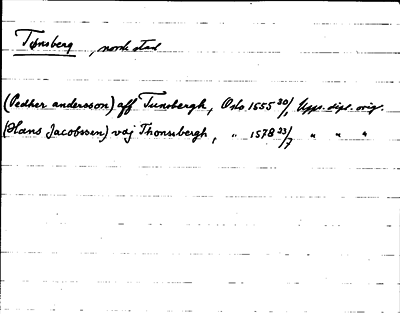 Tønsberg, norsk stad
(Pedher andersson) aff Tunsbergh, Oslo 1555 20/1 Upps. dipl. orig.
(Hans Jacobssen) vdj Thonnsbergh, " 1578 23/7 " " "